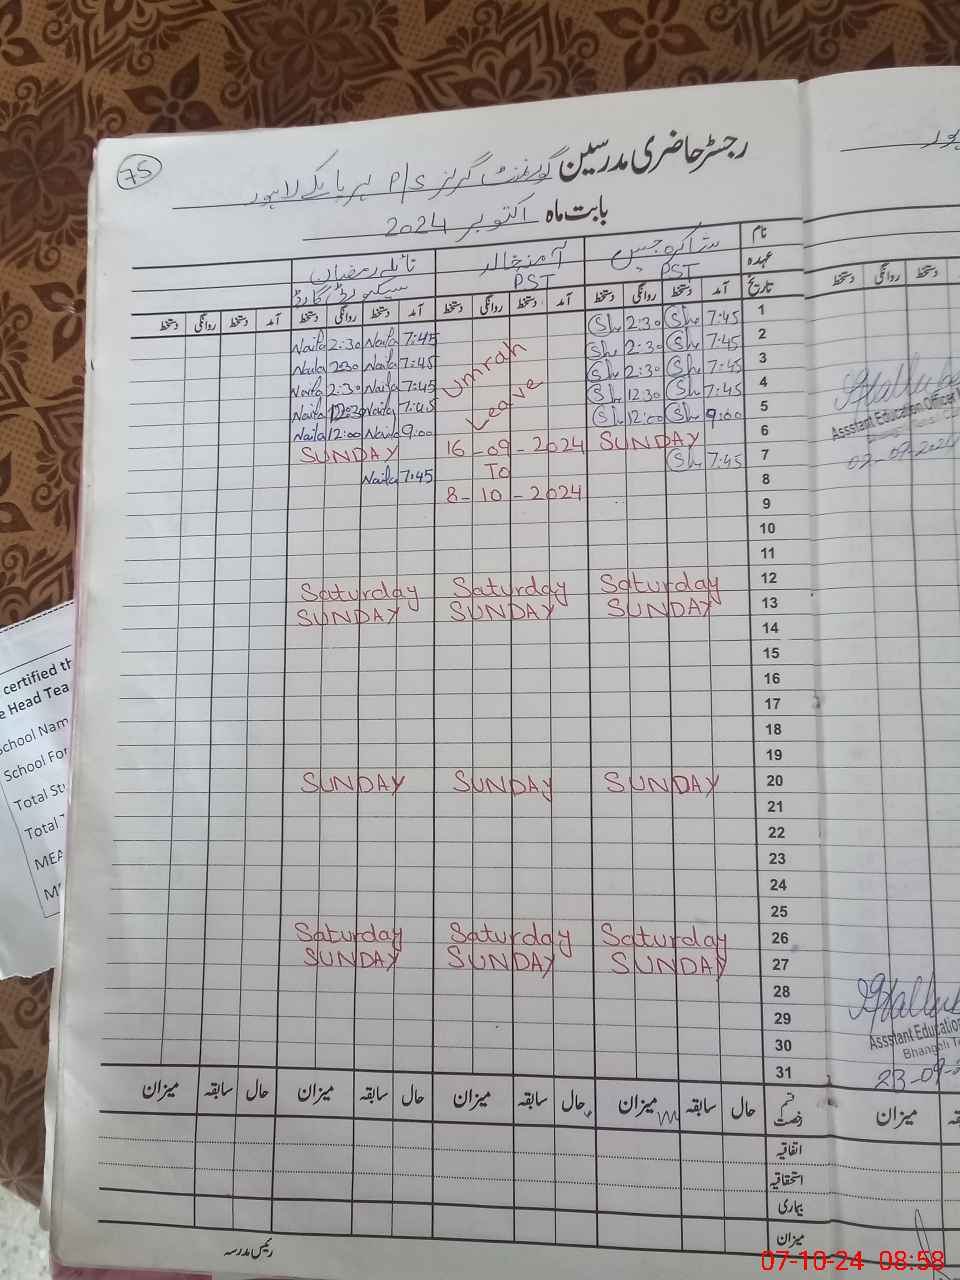 75
رجسٹر حاضری مدرسین گورنمنٹ گرلز P/S لاہور
بابت ماہ اکتوبر 2024
نام
عہدہ
تاریخ
آمنہ خالد
نائلہ رمضان
PST
PST
سیکیورٹی گارڈ
آمد دستخط روانگی دستخط آمد دستخط روانگی دستخط آمد دستخط روانگی دستخط آمد دستخط روانگی دستخط
دستخط روانگی دستخط
1 7:45 Sh 2:30 Sh
Naila 2:30 Naila 7:45
2 7:45 Sh 2:30 Sh
Naila 2:30 Naila 7:45
3 7:45 Sh 2:30 Sh
Naila 2:30 Naila 7:45
4 7:45 Sh 12:30 Sh
Naila 12:30 Naila 7:45
5 9:00 Sh 12:00 Sh
Naila 12:00 Naila 9:00
Umrah
Leave
16-09-2024
To
8-10-2024
6 SUNDAY SUNDAY
7 7:45 Sh
Naila 7:45
8
9
10
11
12 Saturday Saturday Saturday
13 SUNDAY SUNDAY SUNDAY
14
15
16
17
18
19
20 SUNDAY SUNDAY SUNDAY
21
22
23
24
25
26 Saturday Saturday Saturday
27 SUNDAY SUNDAY SUNDAY
28
29
30
31
قسم رخصت
حال سابقہ میزان حال سابقہ میزان حال سابقہ میزان حال سابقہ میزان
میزان
اتفاقیہ
استحقاقیہ
بیماری
میزان
رئیس مدرسہ
Assstant Education Officer
02-09-2024
Assstant Education
Bhangali
23-09-
certified th
e Head Tea
School Nam
School For
Total Stu
Total T
MEA
07-10-24 08:58